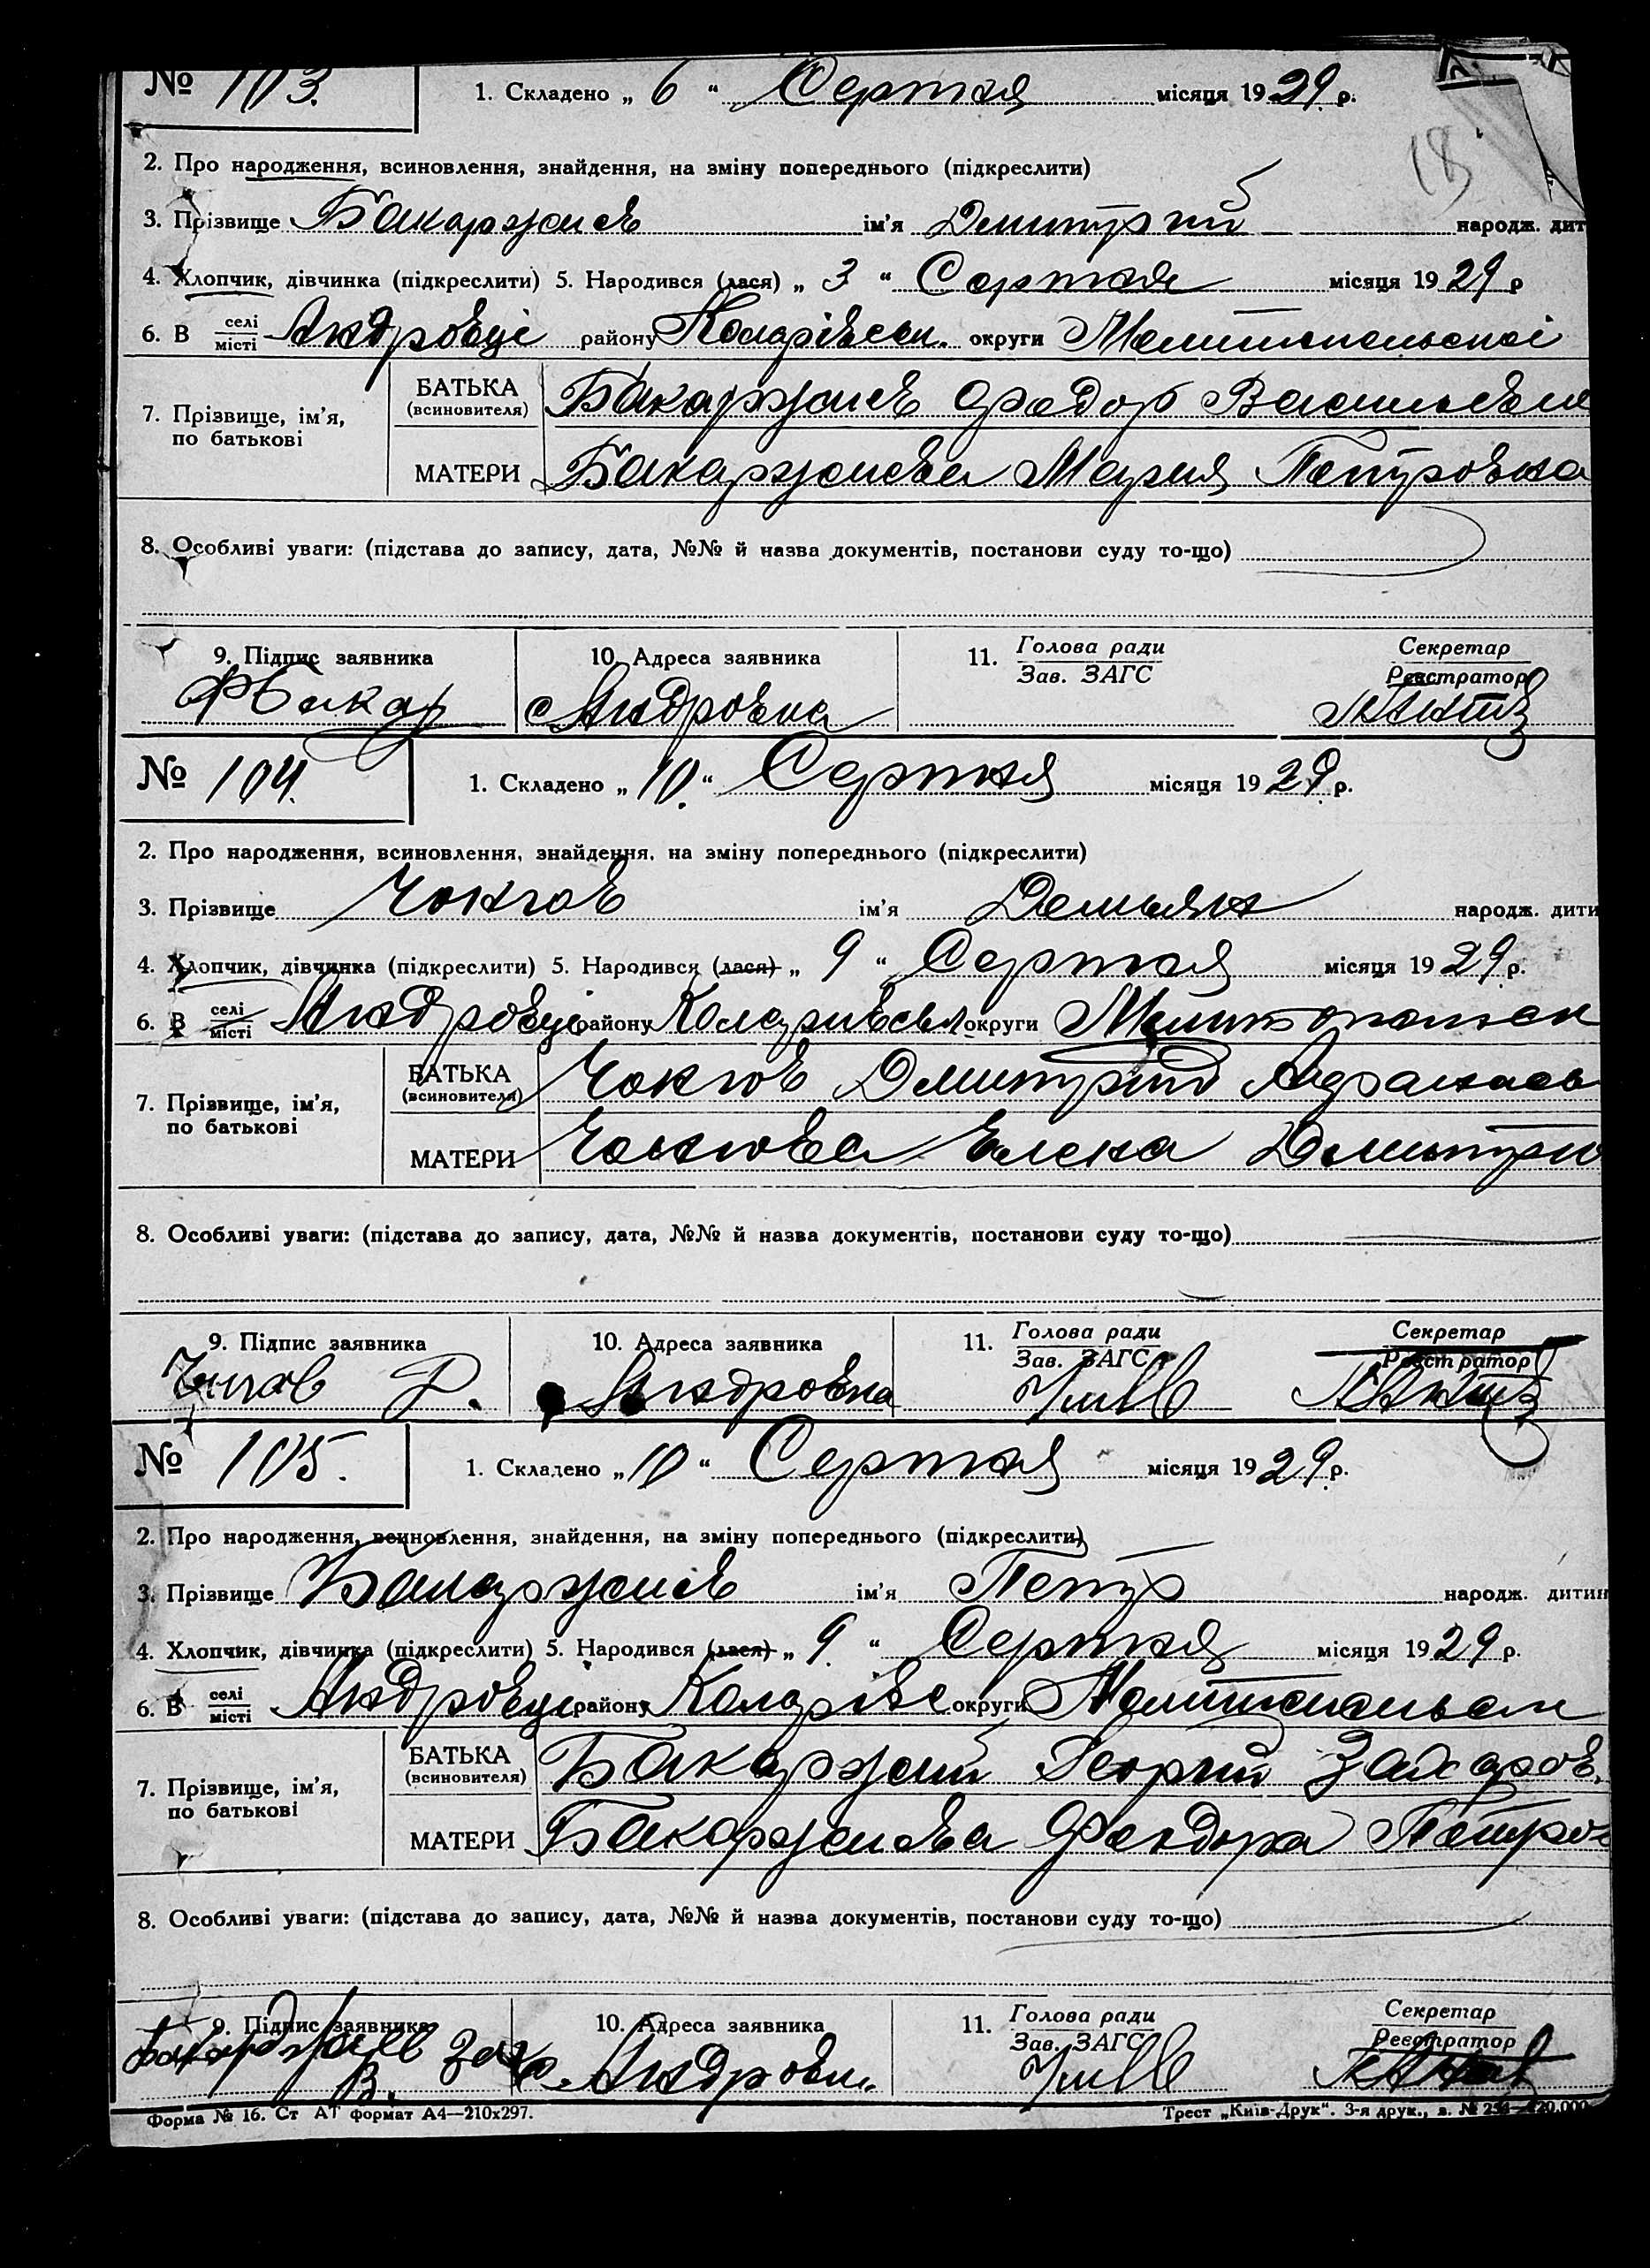 № 103. 1. Складено „ 6 “ Серпня місяця 1929. р.
2. Про народження, всиновлення, знайдення, на зміну попереднього (підкреслити)
3. Прізвище Бакаржиєв ім'я Дмитрий народж. дит
4. Хлопчик, дівчинка (підкреслити) 5. Народився (лася) „ 3 “ Серпня місяця 1929 р
6. В селі місті Андровці району Коларівськ. округи Мелитопольскоі
БАТЬКА (всиновителя) Бакаржиев Федор Васильеви
7. Прізвище, ім'я, по батькові
МАТЕРИ Бакаржиева Мария Петровна
8. Особливі уваги: (підстава до запису, дата, №№ й назва документів, постанови суду то-що)
9. Підпис заявника 10. Адреса заявника 11. Голова ради Зав. ЗАГС Секретар Реєстратор
ФБакар с Андровка
№ 104. 1. Складено „ 10. “ Серпня місяця 1929 р.
2. Про народження, всиновлення, знайдення, на зміну попереднього (підкреслити)
3. Прізвище Чокгов ім'я Демьян народж. дити
4. Хлопчик, дівчинка (підкреслити) 5. Народився (лася) „ 9 “ Серпня місяця 1929 р.
6. В селі місті Андровці району Коларивськ округи Мелитопольск
БАТЬКА (всиновителя) Дмитрий Афанась
7. Прізвище, ім'я, по батькові
МАТЕРИ Елена Дмитри
8. Особливі уваги: (підстава до запису, дата, №№ й назва документів, постанови суду то-що)
9. Підпис заявника 10. Адреса заявника 11. Голова ради Зав. ЗАГС Секретар Реєстратор
Д. Андровка
№ 105. 1. Складено „ 10 “ Серпня місяця 1929 р.
2. Про народження, всиновлення, знайдення, на зміну попереднього (підкреслити)
3. Прізвище Бакаржиев ім'я Петр народж. дитин
4. Хлопчик, дівчинка (підкреслити) 5. Народився (лася) „ 9 “ Серпня місяця 1929 р.
6. В селі місті Андровці району Коларівс округи Мелитопольск
БАТЬКА (всиновителя) Бакаржий Георгий Захаров.
7. Прізвище, ім'я, по батькові
МАТЕРИ Бакаржиева Феодора Петров
8. Особливі уваги: (підстава до запису, дата, №№ й назва документів, постанови суду то-що)
9. Підпис заявника 10. Адреса заявника 11. Голова ради Зав. ЗАГС Секретар Реєстратор
Андровк.
Форма № 16. Ст АТ формат А4—210х297. Трест „Київ-Друк“. 3-я друк., з. № 254—120.000